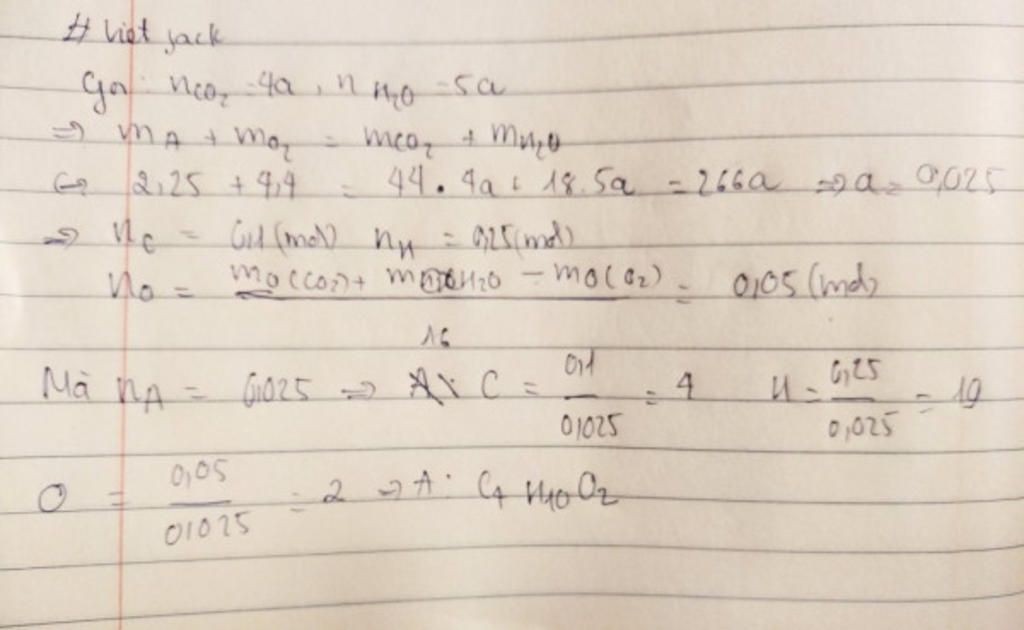 # Viet jack
Gọi: nCO₂ = 4a, nH₂O = 5a
=> mA + mO₂ = mCO₂ + mH₂O
<-> 2,25 + 4,4 = 44.4a + 18.5a = 266a => a = 0,025
=> nC = 0,1 (mol) nH = 0,25 (mol)
nO = mO(CO₂) + mO H₂O - mO(O₂) / 16 = 0,05 (mol)
Mà nA = 0,025 => C = 0,1 / 0,025 = 4 H = 0,25 / 0,025 = 10
O = 0,05 / 0,025 = 2 => A: C₄H₁₀O₂